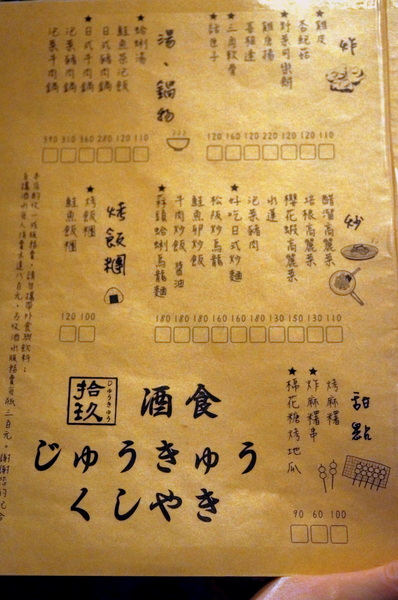 炸
★雞皮
杏鮑菇
★野菜可樂餅
雞塊
喜相逢
★三角軟骨
★甜不子
110
120
120
220
120
160
120
湯、鍋物
★蛤蜊湯
鮭魚茶泡飯
日式豬肉鍋
日式牛肉鍋
泡菜豬肉鍋
泡菜牛肉鍋
110
120
280
360
310
390
炒
醋溜高麗菜
培根高麗菜
櫻花蝦高麗菜
水蓮
泡菜豬肉
★好吃日式炒麵
松阪炒烏龍
鮭魚卵炒飯
牛肉炒飯 醬油
★蒜頭蛤蜊烏龍麵
110
130
150
130
180
160
180
180
180
180
烤飯糰
★烤飯糰
鮭魚飯糰
100
120
甜點
烤麻糬
★炸麻糬串
★棉花糖烤地瓜
100
60
90
拾玖
じゅうきゅう
酒食
じゅうきゅう
くしやき